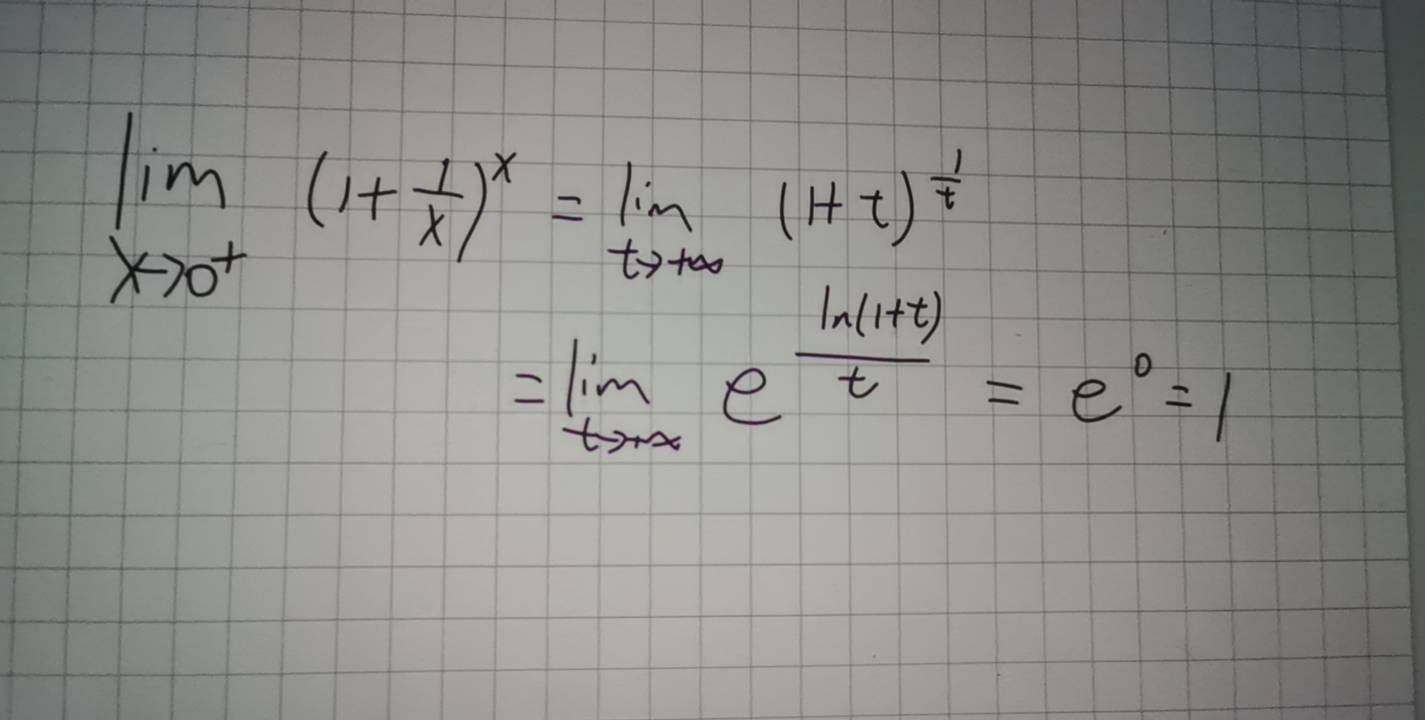 lim x→0⁺ (1+1/x)^x = lim t→+∞ (1+t)^(1/t)
= lim t→+∞ e^(ln(1+t)/t) = e^0 = 1